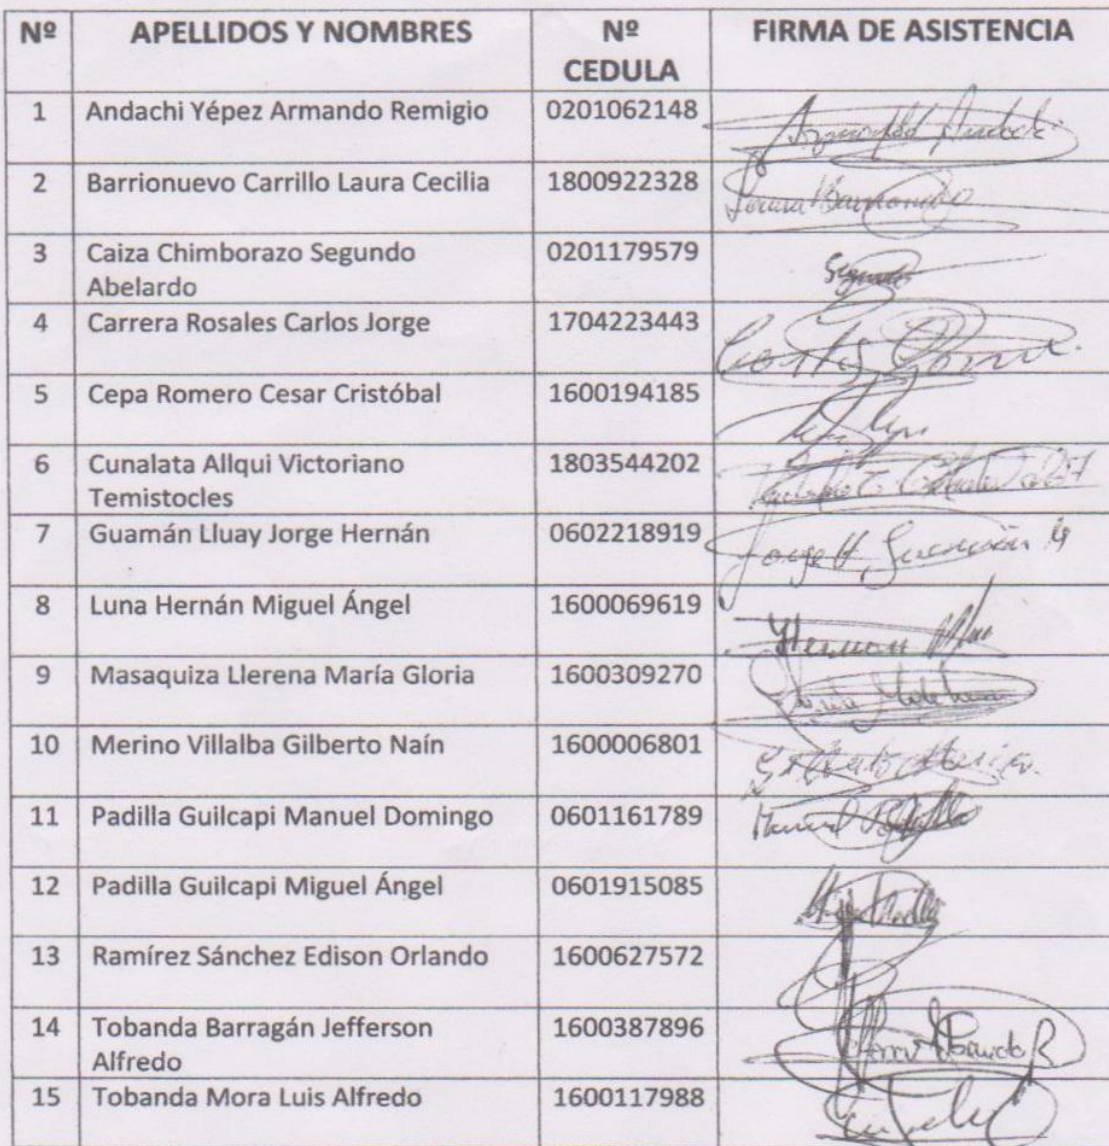 Nº APELLIDOS Y NOMBRES Nº CEDULA FIRMA DE ASISTENCIA
1 Andachi Yépez Armando Remigio 0201062148
2 Barrionuevo Carrillo Laura Cecilia 1800922328
3 Caiza Chimborazo Segundo
Abelardo 0201179579
4 Carrera Rosales Carlos Jorge 1704223443
5 Cepa Romero Cesar Cristóbal 1600194185
6 Cunalata Allqui Victoriano
Temistocles 1803544202
7 Guamán Lluay Jorge Hernán 0602218919
8 Luna Hernán Miguel Ángel 1600069619
9 Masaquiza Llerena María Gloria 1600309270
10 Merino Villalba Gilberto Naín 1600006801
11 Padilla Guilcapi Manuel Domingo 0601161789
12 Padilla Guilcapi Miguel Ángel 0601915085
13 Ramírez Sánchez Edison Orlando 1600627572
14 Tobanda Barragán Jefferson
Alfredo 1600387896
15 Tobanda Mora Luis Alfredo 1600117988